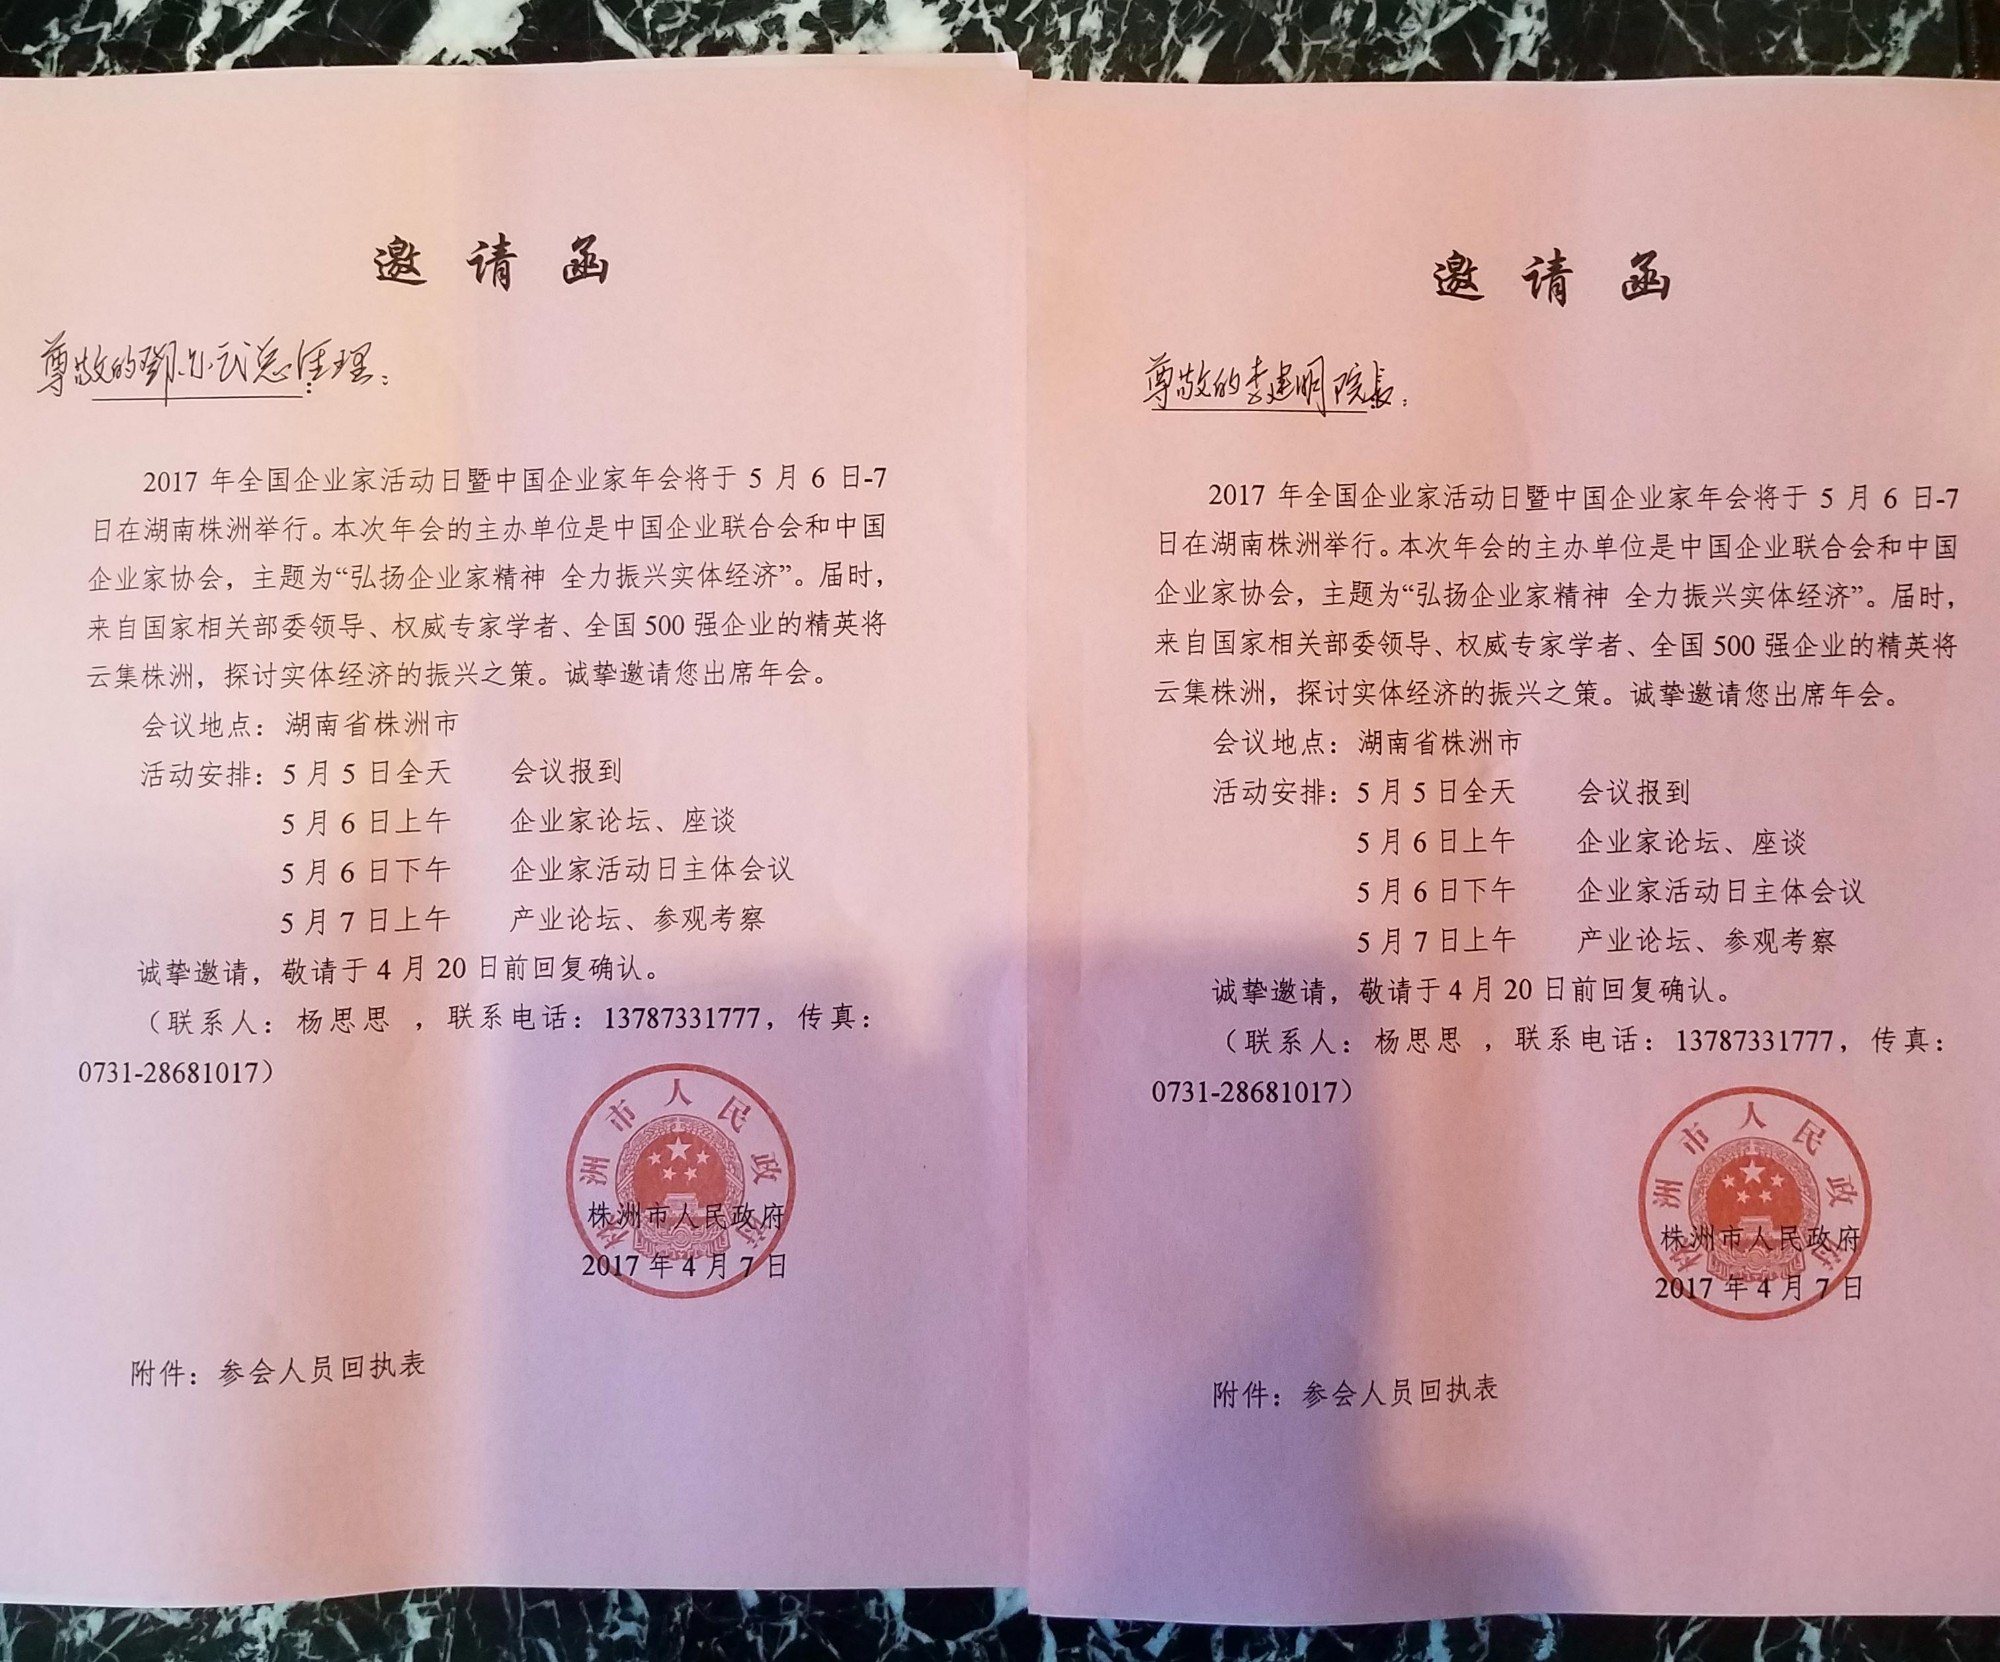 邀请函
尊敬的邓尔武总经理：
2017 年全国企业家活动日暨中国企业家年会将于 5 月 6 日-7
日在湖南株洲举行。本次年会的主办单位是中国企业联合会和中国
企业家协会，主题为“弘扬企业家精神 全力振兴实体经济”。届时，
来自国家相关部委领导、权威专家学者、全国 500 强企业的精英将
云集株洲，探讨实体经济的振兴之策。诚挚邀请您出席年会。
会议地点：湖南省株洲市
活动安排：5 月 5 日全天 会议报到
5 月 6 日上午 企业家论坛、座谈
5 月 6 日下午 企业家活动日主体会议
5 月 7 日上午 产业论坛、参观考察
诚挚邀请，敬请于 4 月 20 日前回复确认。
（联系人：杨思思 ，联系电话：13787331777，传真：
0731-28681017）
株洲市人民政府
株洲市人民政府
2017 年 4 月 7 日
附件：参会人员回执表
邀请函
尊敬的李建明院长：
2017 年全国企业家活动日暨中国企业家年会将于 5 月 6 日-7
日在湖南株洲举行。本次年会的主办单位是中国企业联合会和中国
企业家协会，主题为“弘扬企业家精神 全力振兴实体经济”。届时，
来自国家相关部委领导、权威专家学者、全国 500 强企业的精英将
云集株洲，探讨实体经济的振兴之策。诚挚邀请您出席年会。
会议地点：湖南省株洲市
活动安排：5 月 5 日全天 会议报到
5 月 6 日上午 企业家论坛、座谈
5 月 6 日下午 企业家活动日主体会议
5 月 7 日上午 产业论坛、参观考察
诚挚邀请，敬请于 4 月 20 日前回复确认。
（联系人：杨思思 ，联系电话：13787331777，传真：
0731-28681017）
株洲市人民政府
株洲市人民政府
2017 年 4 月 7 日
附件：参会人员回执表